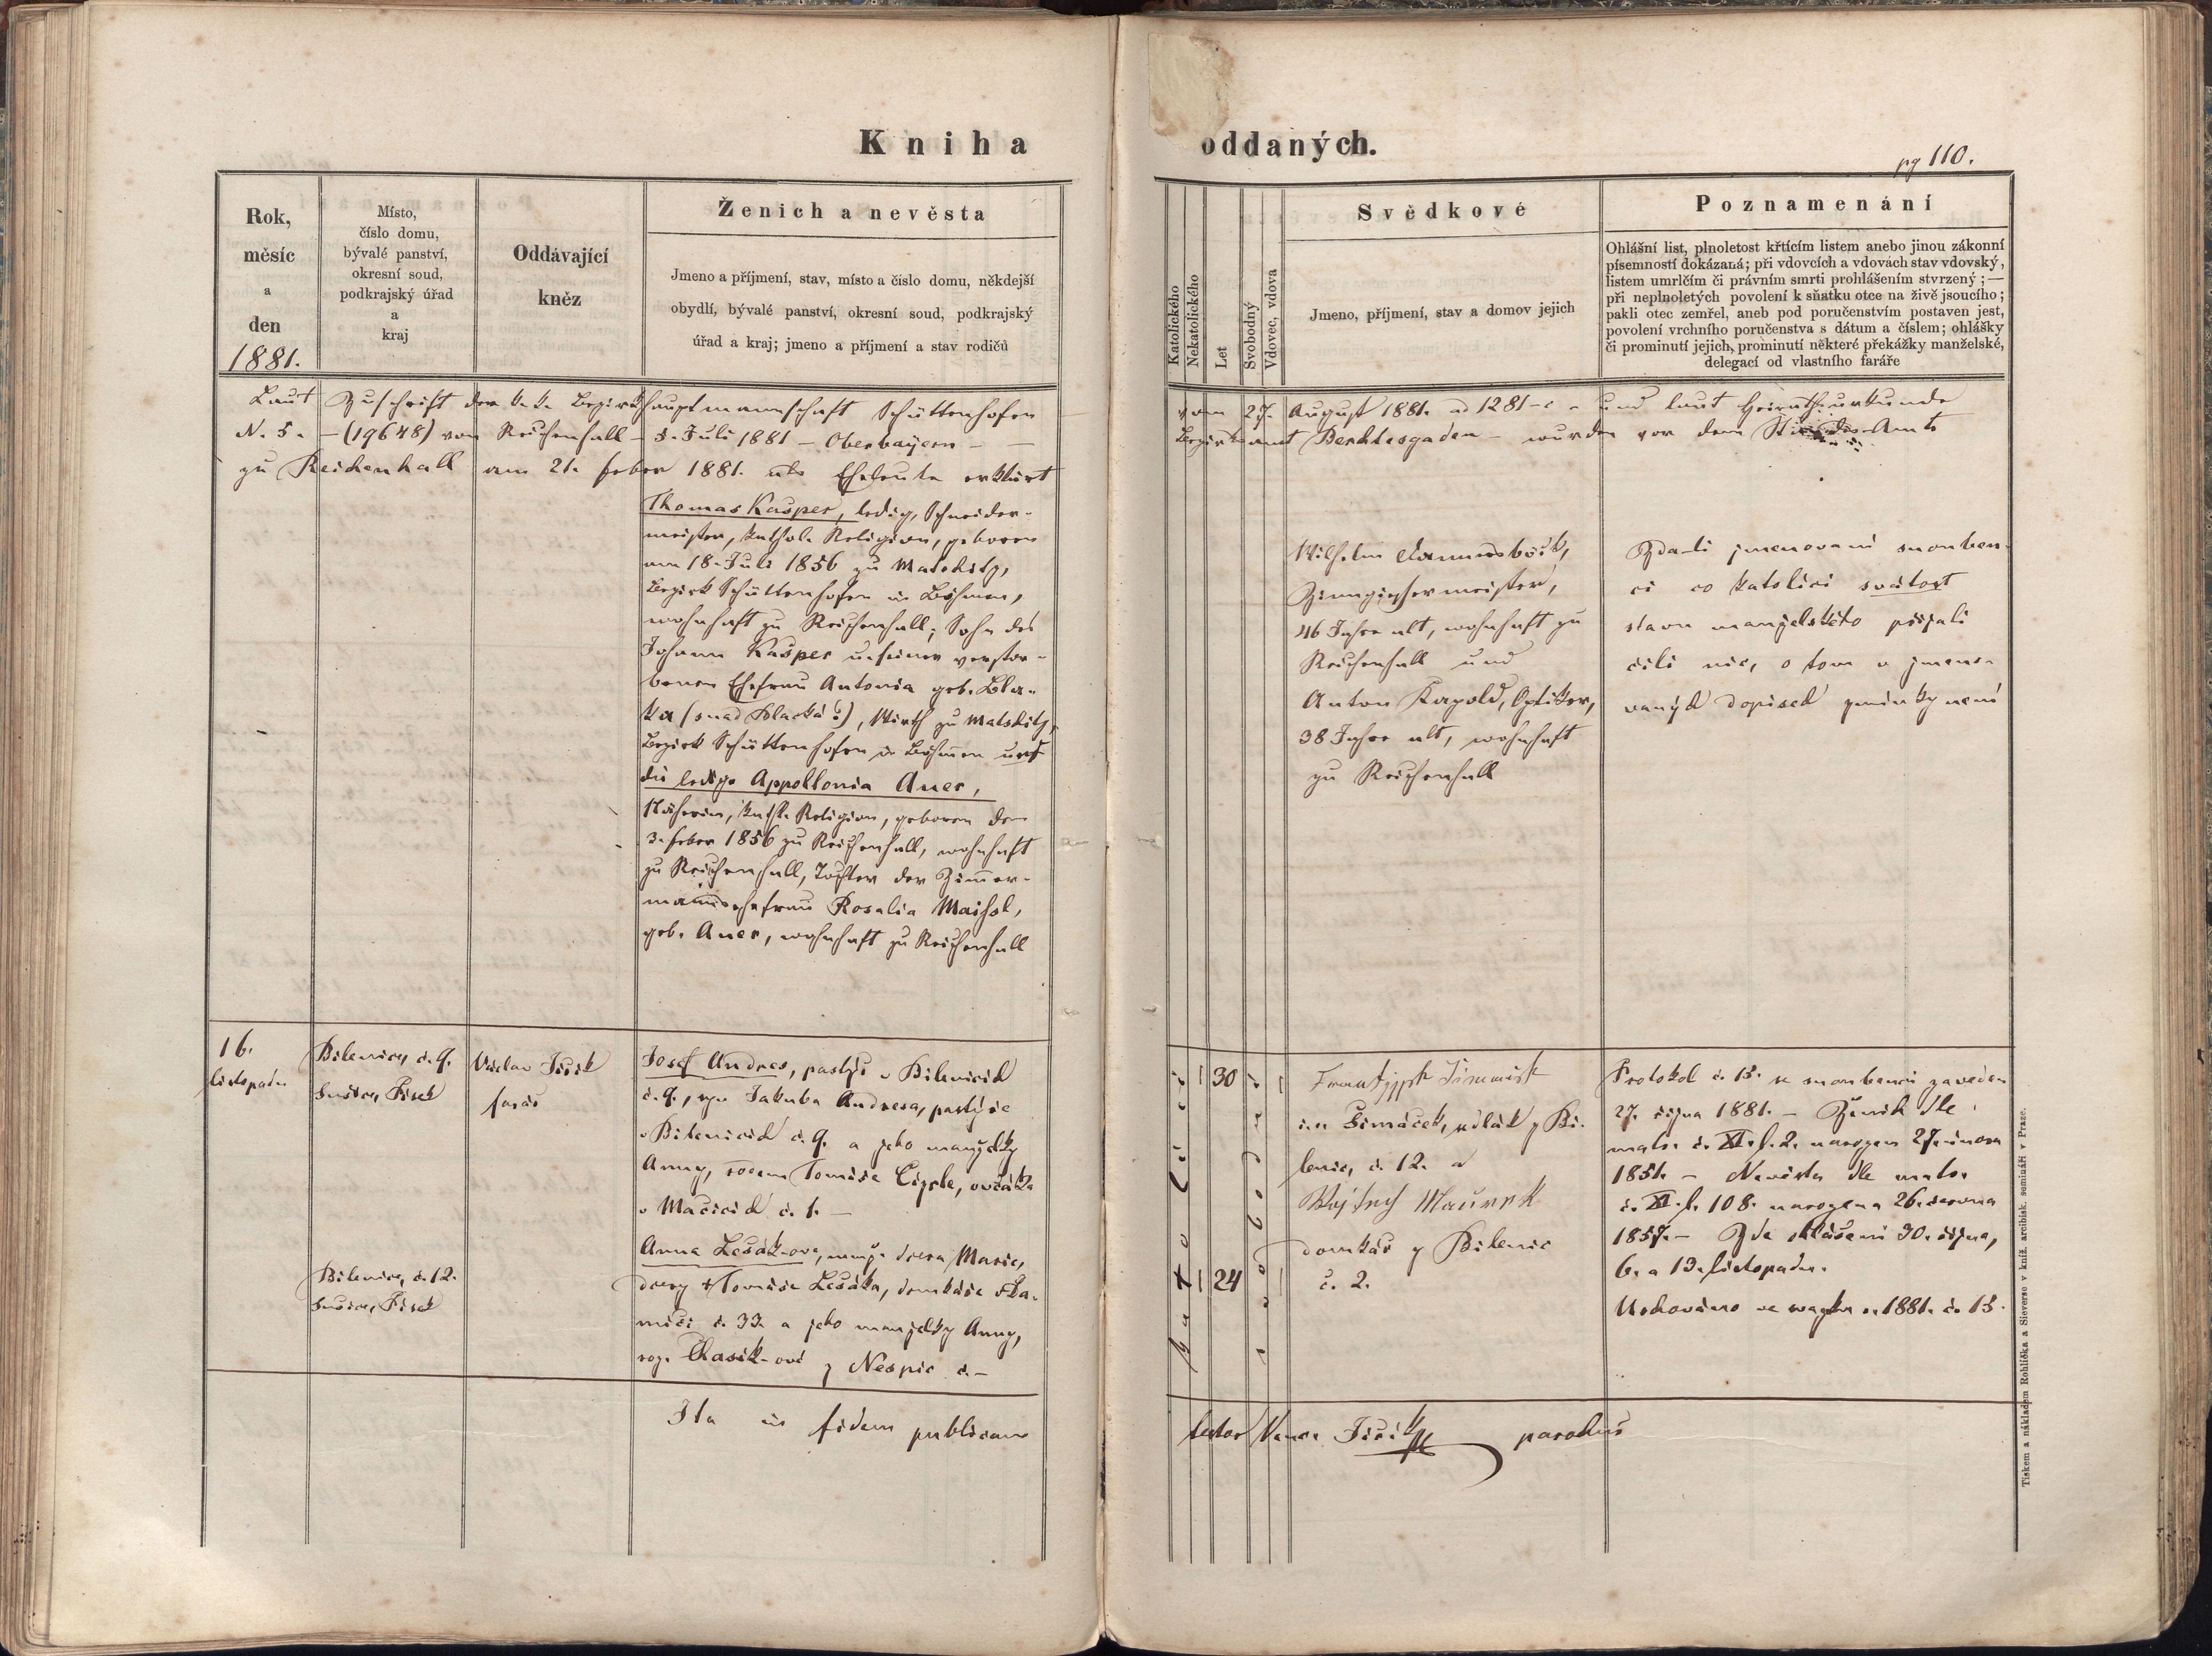 Kniha oddaných.
pg 110.
Rok,
měsíc
a
den
1881.
Místo,
číslo domu,
bývalé panství,
okresní soud,
podkrajský úřad
a
kraj
Oddávající
kněz
Ženich a nevěsta
Jmeno a příjmení, stav, místo a číslo domu, někdejší
obydlí, bývalé panství, okresní soud, podkrajský
úřad a kraj; jmeno a příjmení a stav rodičů
Katolického
Nekatolického
Let
Svobodný
Vdovec, vdova
Svědkové
Jmeno, příjmení, stav a domov jejich
Poznamenání
Ohlášní list, plnoletost křtícím listem anebo jinou zákonní
písemností dokázaná; při vdovcích a vdovách stav vdovský,
listem umrlčím či právním smrti prohlášením stvrzený; —
při neplnoletých povolení k sňatku otce na živě jsoucího;
pakli otec zemřel, aneb pod poručenstvím postaven jest,
povolení vrchního poručenstva s dátum a číslem; ohlášky
či prominutí jejich, prominutí některé překážky manželské,
delegací od vlastního faráře
Laut Zuschrift der k. k. Bezirkshauptmannschaft Schüttenhofen vom 27. August 1881. ad 1281 - und laut Heirathsurkunde
N. 5. - (19648) von Reichenhall - 3. Juli 1881 - Oberbayern - Bezirksamt Berchtesgaden - wurden vor dem Amte
zu Reichenhall am 21. Feber 1881. als Eheleute erklärt
Thomas Kašper, ledig, Schneider-
meister, kathol. Religion, geboren
am 18. Juli 1856 zu Malskitz,
Bezirk Schüttenhofen in Böhmen,
wohnhaft zu Reichenhall; Sohn des
Johann Kašper u. seiner verstor-
benen Ehefrau Antonia geb. Bla-
ka (snad Blacká?), Wirth zu Malskitz,
Bezirk Schüttenhofen in Böhmen und
die ledige Appollonia Auer,
Näherin, kath. Religion, geboren den
3. Feber 1856 zu Reichenhall, wohnhaft
zu Reichenhall, Tochter der Zimmer-
mannsehefrau Rosalia Maißl,
geb. Auer, wohnhaft zu Reichenhall
Wilhelm
Zinngießermeister,
46 Jahre alt, wohnhaft zu
Reichenhall und
Anton Rapold, Optiker,
38 Jahre alt, wohnhaft
zu Reichenhall
Zda-li jmenovaní snouben-
ci co katolíci svátost
stavu manželského přijali
čili nic, o tom v jmeno-
vaných dopisech zmínky není
16.
listopadu
Bilenice, č. 9.
Sušice, Písek
Václav Jiřík
farář
Josef Andres, pastýř v Bilenicích
č. 9., syn Jakuba Andresa, pastýře
v Bilenicích č. 9. a jeho manželky
Anny, rozené Tomáše Cizrle, ovčáka
v Mačicích č. 1. -
Bilenice, č. 12.
Sušice, Písek
Anna Lešák-ova, manž. dcera Marie,
dcery † Tomáše Lešáka, domkáře
č. 33. a jeho manželky Anny,
roz. z Nespic č. -
katolíci
30
24
svobodní
František Šimáček
Šimáček, sedlák z Bi-
lenic, č. 12. a
Wojtěch Maurek
domkář z Bilenic
č. 2.
Protokol č. 13. se snoubenci zaveden
27. října 1881. - Ženich dle
matr. č. XI. f. 2. narozen 27. února
1851. - Nevěsta dle matr.
č. XI. f. 108. narozena 26. června
1857. - Zde ohlášeni 30. října,
6. a 13. listopadu.
Uschováno ve svazku r. 1881. č. 13.
Ita in fidem publicam testor Venc. Jiřík parochus
Tiskem a nákladem Rohlíčka a Sieverse v kníž. arcibisk. semináři v Praze.